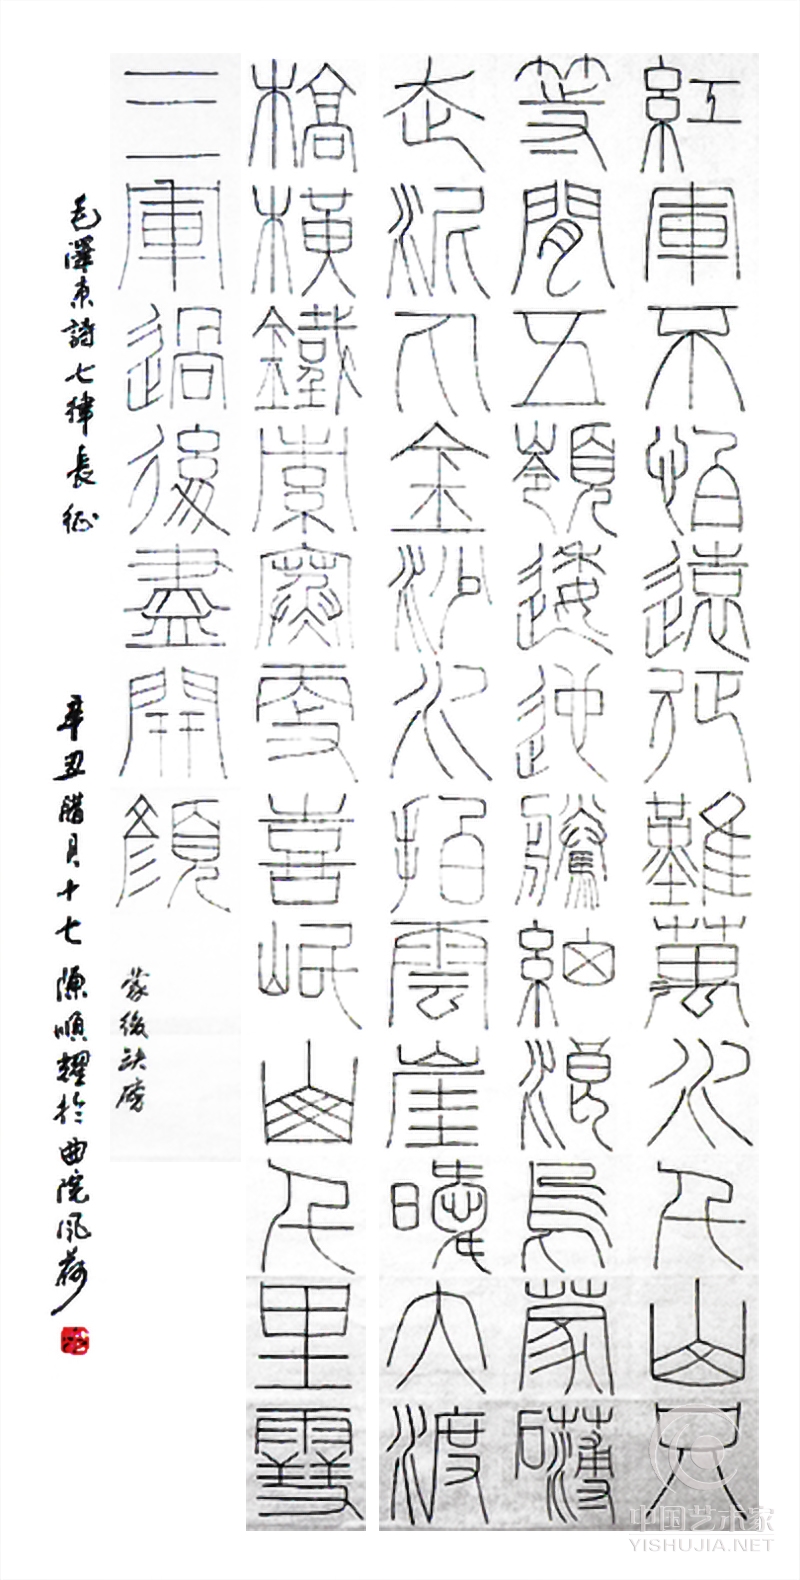 紅軍不怕遠征難萬水千山只
等閒五嶺逶迤騰細浪烏蒙礴
走泥丸金沙水拍雲崖暖大渡
橋橫鐵索寒更喜岷山千里雪
三軍過後盡開顏
蒙後缺磅
毛澤東詩七律長征
辛丑腊月十七 陳順耀於曲院风荷
中国艺术家
YISHUJIA.NET